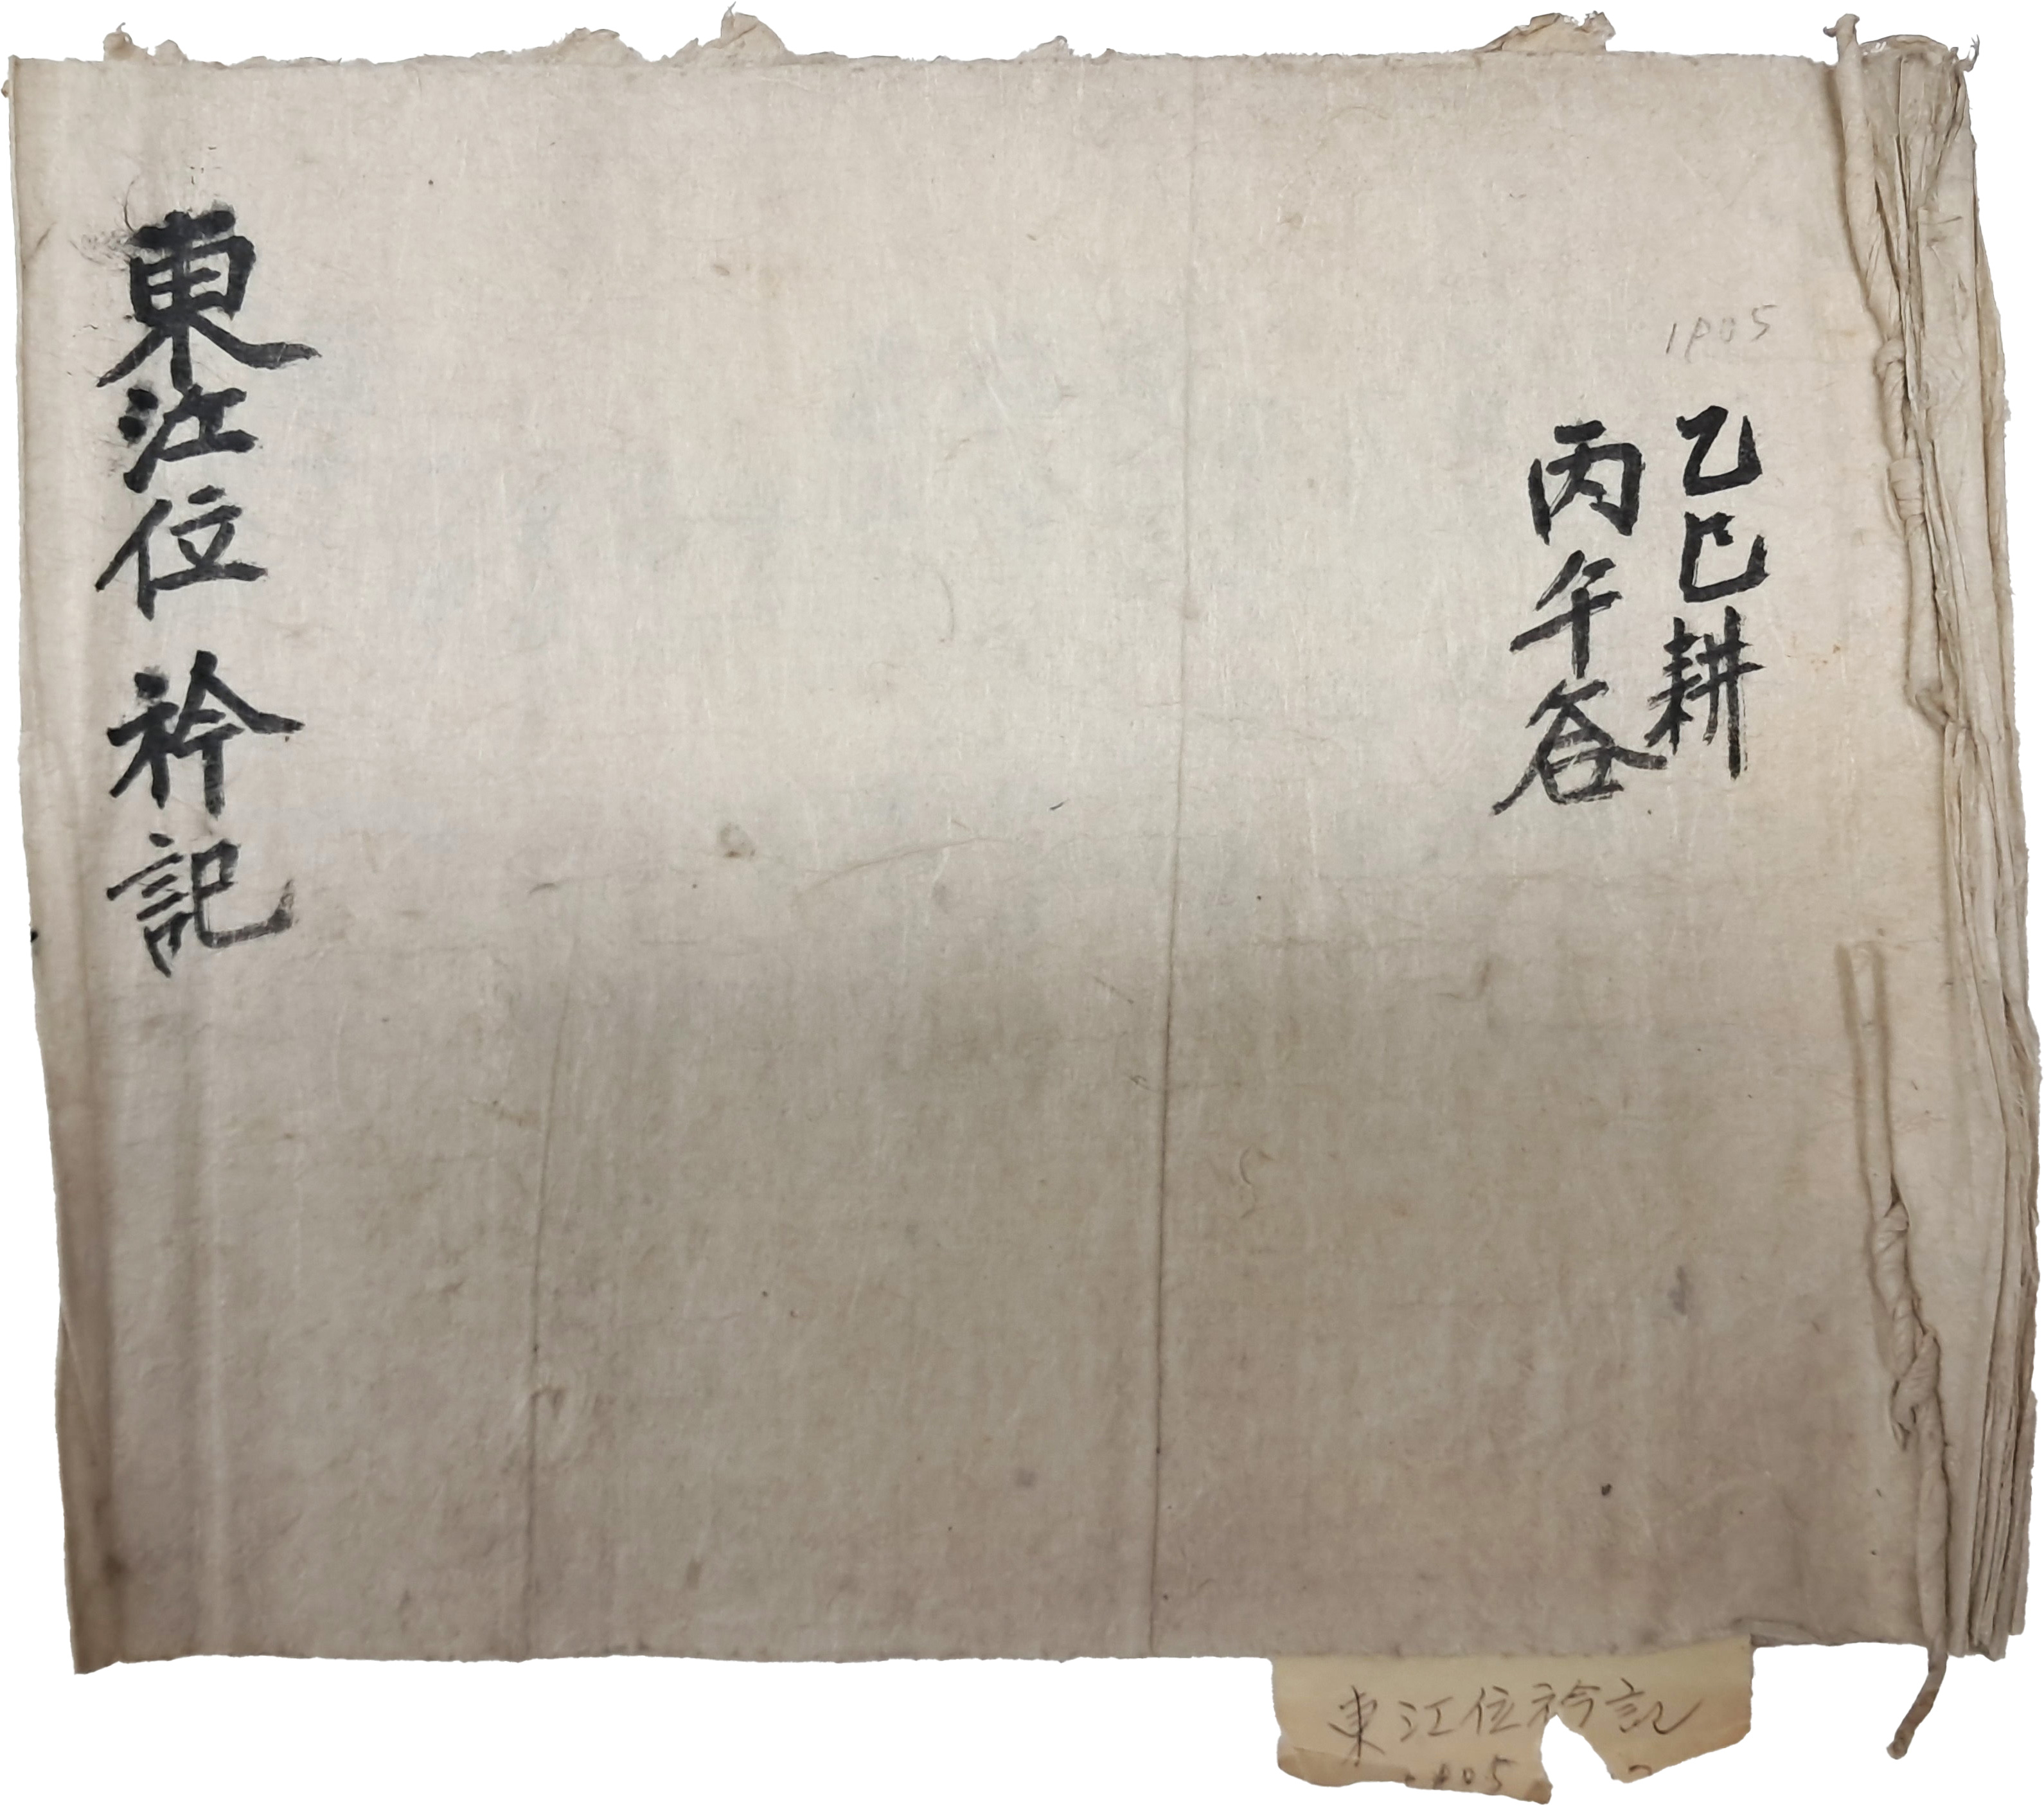 1905
乙巳耕
丙午谷
東江位 衿記
東江位衿記
1905